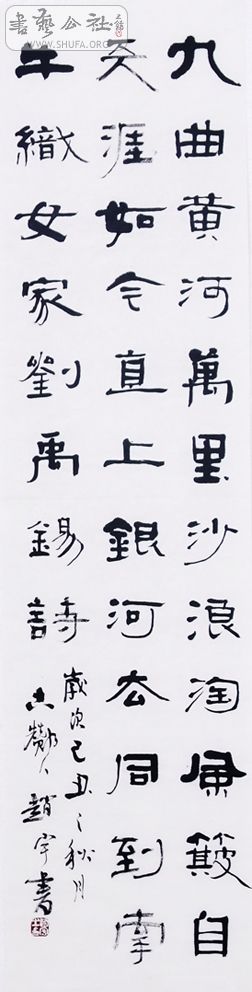 九曲黄河萬里沙浪淘風簸自
天涯如今直上銀河去同到牽
牛織女家劉禹錫詩
歲次己丑之秋月
趙宇書
書藝公社
WWW.SHUFA.ORG